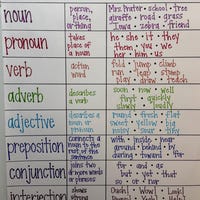 noun person, place, or thing Mrs. Prater • school • tree
giraffe • road • grass
Iowa • zebra • friend
pronoun takes place of a noun he • she • it • they
them • you • we
her • him • us
verb action word fold • jump • climb
run • leap • stomp
play • draw • toss
adverb describes a verb soon • now • well
first • quickly
slowly
adjective describes a noun or pronoun round • fresh • flat
sweet • yellow • big
noisy • sour • tiny
preposition connects a noun to the rest of the sentence with • inside • near
around • behind • by
during • toward • for
conjunction joins two or more words for • and • as
but • yet • that
so • or • nor
interjection shows strong Ouch! • Wow! •